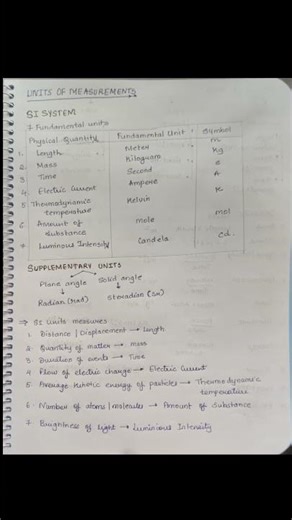 UNITS OF MEASUREMENTS
SI SYSTEM
7 Fundamental units
Physical Quantity Fundamental Unit Symbol
1. Length Meter m
2. Mass Kilogram Kg
3 Time Second s
4. Electric Current Ampere A
5 Thermodynamic temperature Kelvin K
6. Amount of Substance mole mol
7 Luminous Intensity Candela cd.
SUPPLEMENTARY UNITS
Plane angle Solid angle
↓ ↓
Radian (rad) Steradian (Sr)
⇒ SI Units measures :
1. Distance / Displacement → Length
2. Quantity of matter → mass
3. Duration of events → Time
4 Flow of electric charge → Electric Current
5. Average kinetic energy of particles → Thermodynamic
temperature
6. Number of atoms / molecules → Amount of Substance
7. Brightness of light → Luminious Intensity